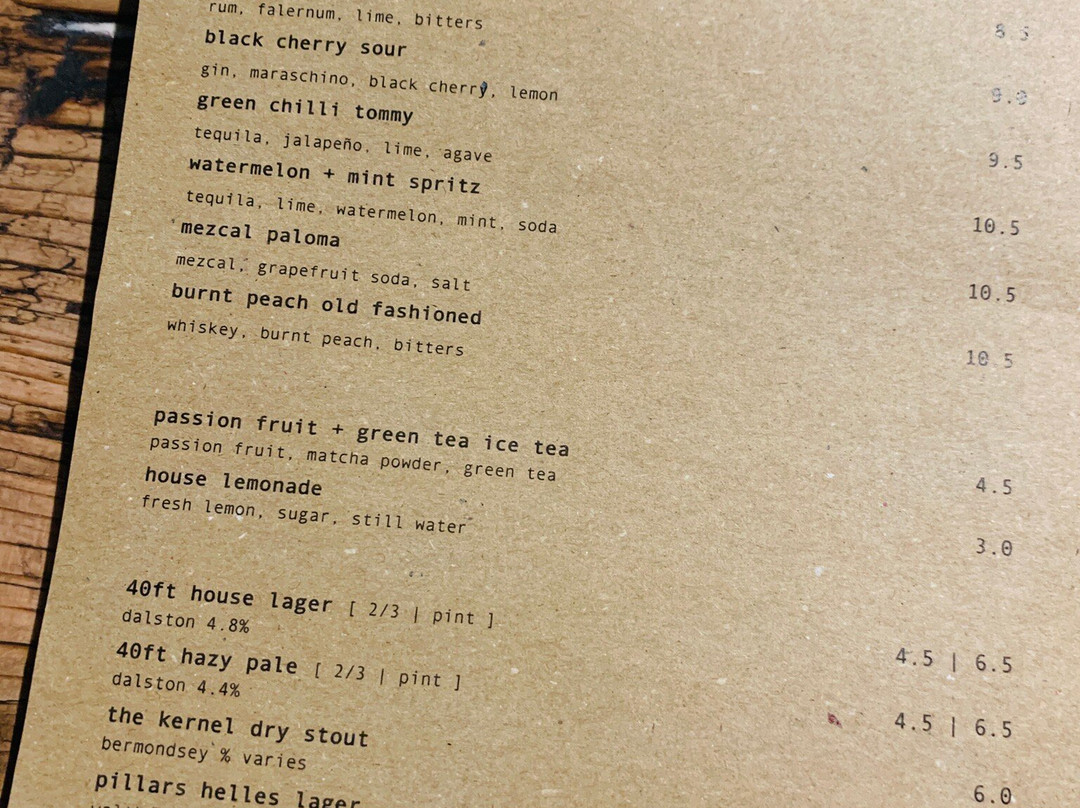 rum, falernum, lime, bitters 8.5
black cherry sour
gin, maraschino, black cherry, lemon 9.0
green chilli tommy
tequila, jalapeño, lime, agave 9.5
watermelon + mint spritz
tequila, lime, watermelon, mint, soda 10.5
mezcal paloma
mezcal, grapefruit soda, salt 10.5
burnt peach old fashioned
whiskey, burnt peach, bitters 10.5
passion fruit + green tea ice tea
passion fruit, matcha powder, green tea 4.5
house lemonade
fresh lemon, sugar, still water 3.0
40ft house lager [ 2/3 | pint ]
dalston 4.8% 4.5 | 6.5
40ft hazy pale [ 2/3 | pint ]
dalston 4.4% 4.5 | 6.5
the kernel dry stout
bermondsey % varies 6.0
pillars helles lager